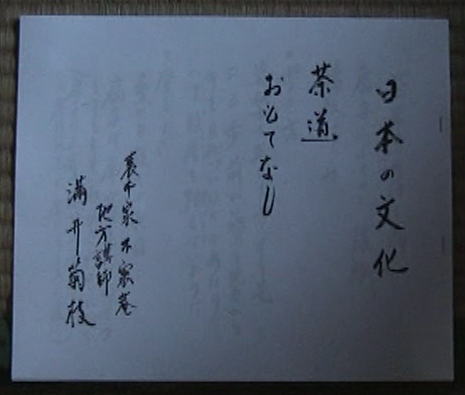 日本の文化
茶道
おもてなし
裏千家 不審菴
地方講師
満井菊枝